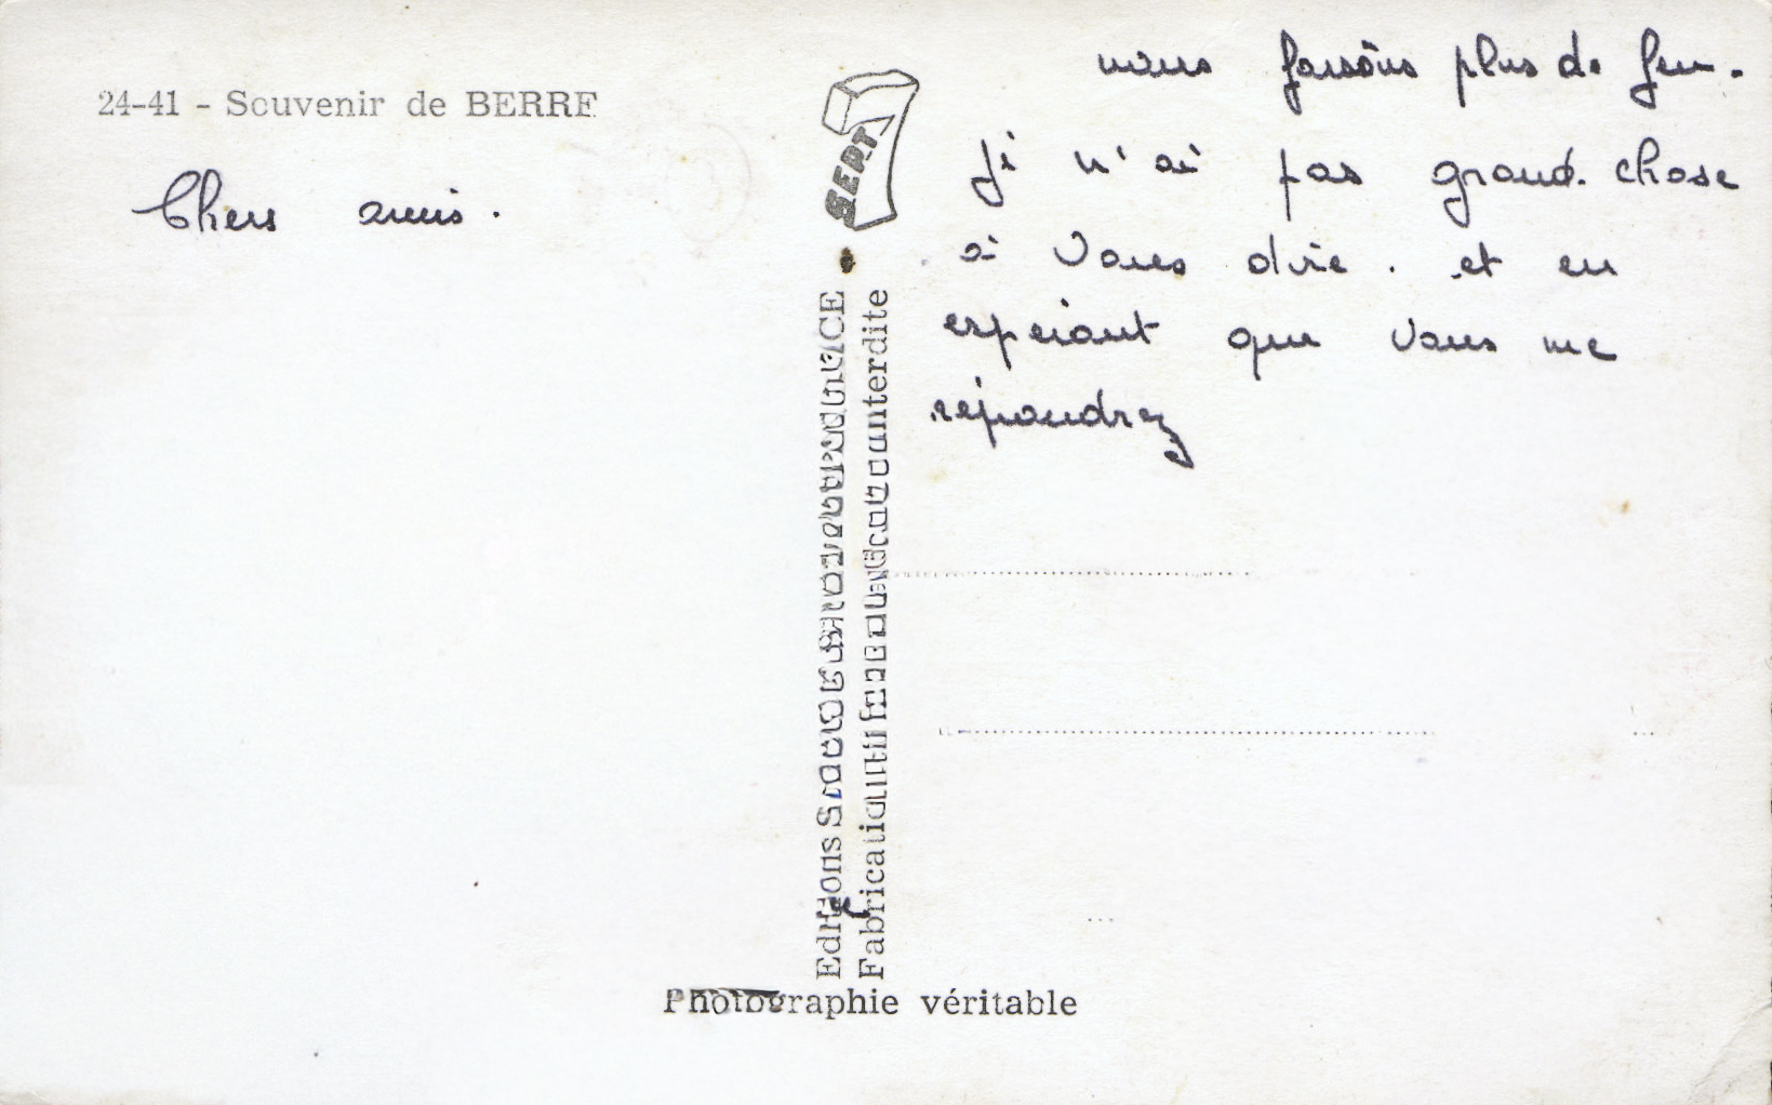 24-41 - Souvenir de BERRE
Chers amis.
nous faisons plus de feu.
Je n'ai pas grand chose
à vous dire. et en
espérant que vous me
répondrez
SEPT
Editions
Fabrication interdite
Photographie véritable